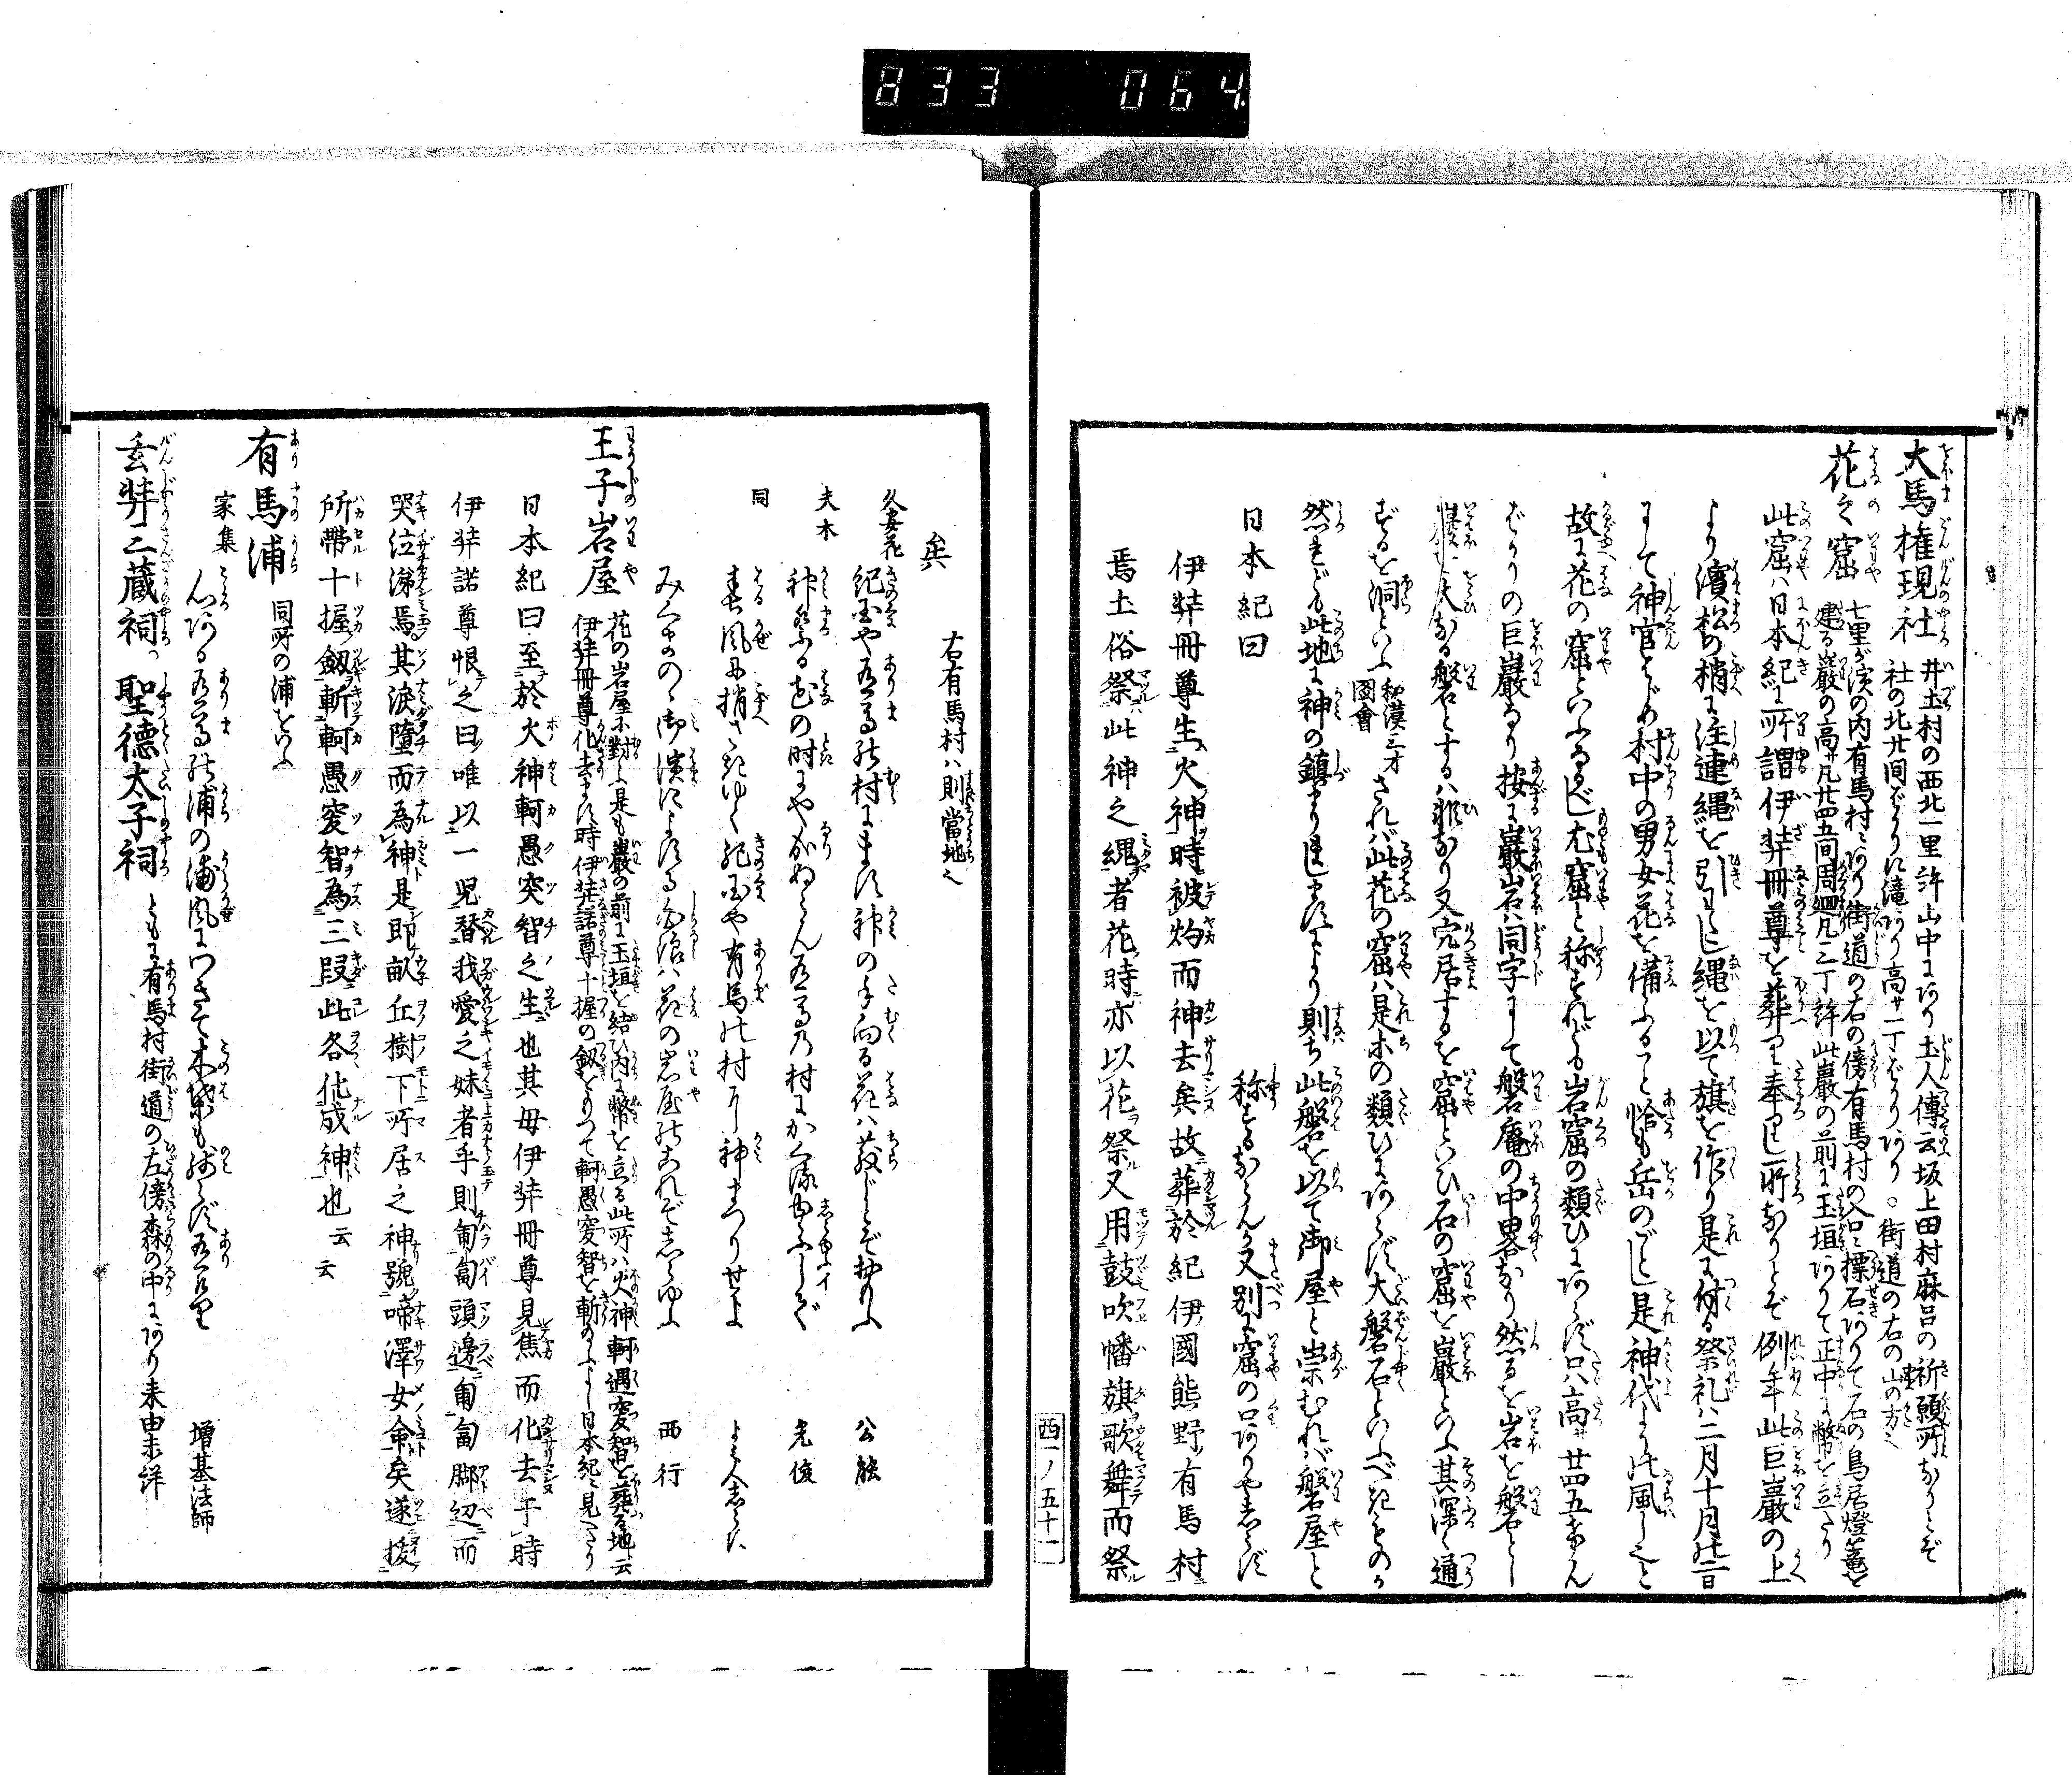 833 064
大馬権現社 井土村の西北一里許山中にあり土人傳云坂上田村麻呂の祈願所なりとぞ
社の北廿間ばかりに滝あり高サ一丁ばかりあり○街道の右の山の方也
花之窟 七里が濱の内有馬村にあり街道の右の傍有馬村の入口に標石ありて石の鳥居燈篭を
建る巌の高サ凡廿四五間周廻凡二丁許此巌の前に玉垣ありて正中に幣を立たり
此窟ハ日本紀に所謂伊弉冊尊を葬り奉りし所なりとぞ例年此巨巌の上
より濱松の梢に注連縄を引わたし縄を以て旗を作り是に付る祭礼ハ二月十月の二日
にして神官はじめ村中の男女花を備ふること恰も岳のごとし是神代よりの風しと
故に花の窟といふなるべし尤窟と称すれども岩窟の類ひにあらず只高サ廿四五けん
ばかりの巨巌なり按に巌岩ハ同字にして磐ハ庵の中畧なり然るを岩を磐とし
巌を大なる磐とするハ非なり又穴居するを窟といひ石の窟を巌といふ其深く通
ずるを洞といふ 和漢三才圖會 されバ此花の窟ハ是ホの類ひにあらず大磐石といふべきものか
然れども此地に神の鎮まりましますより則ち此磐を以て御屋と崇むれバ磐屋と
称するならんか又別に窟の口ありや志らず
日本紀曰
伊弉冊尊生火神時被灼而神去矣故葬於紀伊國熊野有馬村
焉土俗祭此神之魂者花時亦以花祭又用鼓吹幡旗歌舞而祭
西一ノ五十一
矣
右有馬村ハ則當地也
久安花 紀の国や有馬の村にます神の手向る花ハちらじとぞおもふ 公能
夫木 神まつる花の時にやなりぬらん有馬の村にかくるゆふしで 光俊
同 春風に梢さきゆく紀の国や有馬の村に神まつりせよ よミ人志らず
みくまのゝ御濱によする白浪ハ花の岩屋のこれぞ志らゆふ 西行
王子岩屋 花の岩屋に對ふ是も巌の前に玉垣を結ひ内に幣を立る此所ハ火神軻遇突智を葬る地と云
伊弉冊尊化去ます時伊弉諾尊十握の劔をもつて軻愚突智を斬給ふよし日本紀に見へたり
日本紀曰至於火神軻愚突智之生也其母伊弉冊尊見焦而化去于時
伊弉諾尊恨之曰唯以一児替我愛之妹者乎則匍匐頭邊匍匐脚辺而
哭泣涕焉其涙墮而為神是即畝丘樹下所居之神號啼澤女命矣遂抜
所帶十握劔斬軻愚突智為三段此各化成神也云云
有馬浦 同所の浦をいふ
家集 心ある有馬の浦の浦風にわきて木葉も残らず有ける 増基法師
玄弉三蔵祠 聖德太子祠 ともに有馬村街道の左傍森の中にあり来由未詳